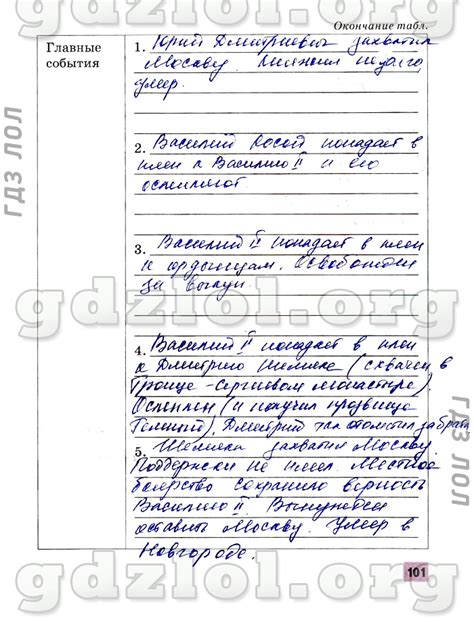 Окончание табл.
Главные
события
1. Юрий Дмитриевич захватил
Москву. Княжил недолго
умер.
2. Василий Косой попадает в
плен к Василию II и его
ослепляют
3. Василий II попадает в плен
к ордынцам. Освобожден
за выкуп.
4. Василий II попадает в плен
к Дмитрию Шемяке (схвачен в
Троице-Сергиевом монастыре).
Ослеплен (и получил прозвище
Темный), Дмитрий так отомстил за брата
5. Шемяка захватил Москву.
Поддержки не имел. Местное
боярство сохранило верность
Василию II. Вынужден
оставить Москву. Умер в
Новгороде.
101
gdzlol.org
gdzlol.org
gdzlol.org
ГДЗ ЛОЛ
ГДЗ ЛОЛ